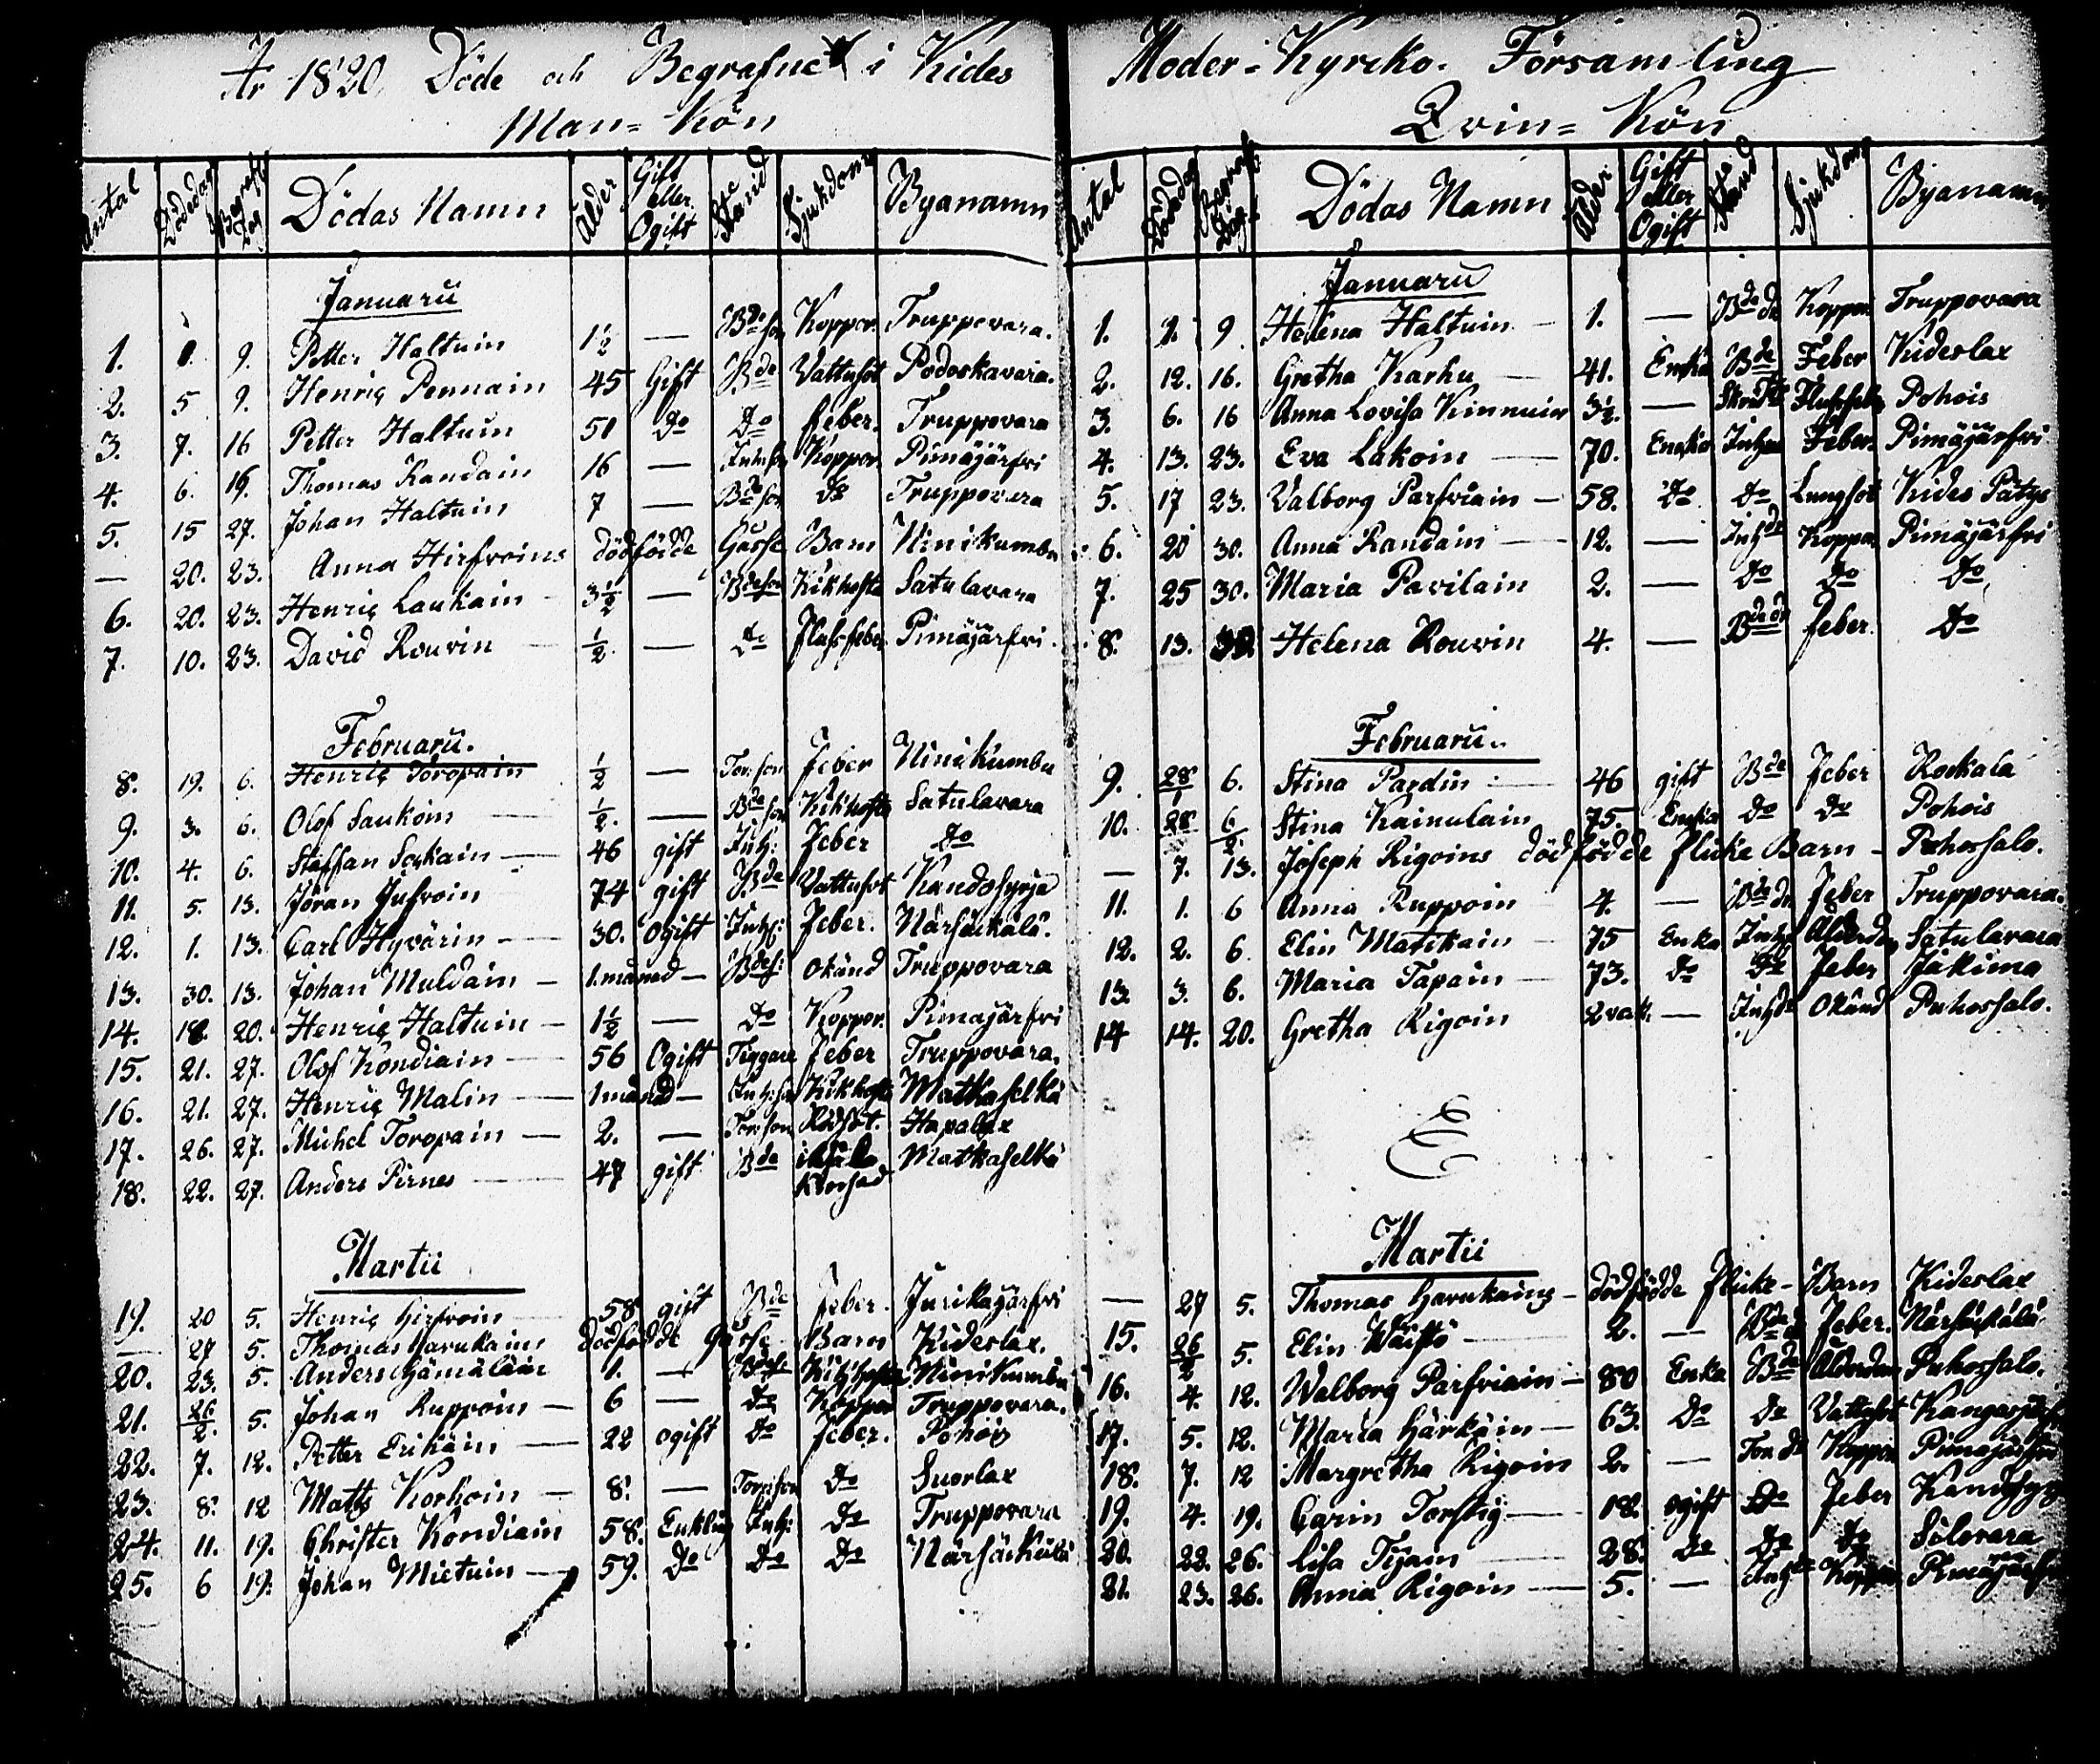 År 1820 Döde och Begrafne i Kides Moder-Kyrko-Församling
Man-Kön
Antal Dödedag Begrafn Dag Dödas Namn Ålder Gift eller Ogift Stånd Sjukdom Byanamn
Januarii
1. 9. Petter Haltuin 1½ — Bde son Koppor Truppovara.
2. 5 9. Henric Pennain 45 Gift Bde Vattusot Podoskavara.
3. 7. 16 Petter Haltuin 51 Do Do feber. Truppovara
4. 6. 16. Thomas Randain 16 — Inh:son Koppor Pimäjärfvi
5. 15 27. Johan Haltuin 7 — Bde son do Truppovara
— 20. 23. Anna Hirfvoins dödfödde Gosse Barn Niinikumbu
6. 20. 23. Henric Laukain 3½ — Bdeson Kikhosta Satulavara
7. 10. 23. David Rouvin — ½. — Do Flussfeber Pimäjärfvi.
Februarii.
8. 19. 6. Henric Toropain ½ — Tor:son Feber Niinikumbu
9. 3. 6. Olof Laukoin ½. — Bde son Kikhosta Satulavara
10. 4. 6. Staffan — 46 gift Inh: Feber Do
11. 5. 13. Jöran Jufvoin 74 gift Bde Vattusot Kandosyrja
12. 1. 13. Carl Hyvärin — 30. Ogift Inh: Feber. Närsäckälä.
13. 30. 13. Johan Muldain — 1.månad — Bdes: Okänd Truppovara
14. 18. 20. Henric Haltuin — 1½ — Do Koppor. Pimäjärfvi
15. 21. 27. Olof Kondiain — 56 Ogift Tiggare Feber Truppovara.
16. 21. 27. Henric Malin — 1 månad — Inh:son Kikhosta Matkaselkä
17. 26. 27. Michel Toropain — 2. — Tor:son Rödsot. Hapalax
18. 22. 27. Anders Pirnes — 47 gift Bde Matkaselkä
Martii
19. 20 5. Henric Hirfvoin 58 gift Bde Feber. Jurikajärfvi
— 27 5. Thomas Havukains dödfödde Gosse Barn Kideslax.
20. 23. 5. Anders Hämäläin 1. — Kikhosta Niinikumbu
21. 26/2. 5. Johan Ruppoin — 6 — Do Koppor Truppovara.
22. 7. 12. Petter Erikäin — 22 ogift Do Feber. Pohois
23. 8. 12 Matts Korhoin — 8. — Torp:son Do Suorlax
24. 11. 19. Christer Kondiain 58. Enkling Inh: Do Truppovara
25. 6 19. Johan Mietuin — 59. Do Do Do Närsäckälä
Qvin-Kön
Antal Dödedag Begrafn Dag Dödas Namn Ålder Gift eller Ogift Stånd Sjukdom Byanamn
Januarii
1. 1. 9. Helena Haltuin — 1. — Bde dr Koppor Truppovara
2. 12. 16. Gretha Karhu — 41. Enka Bde Feber Kideslax
3. 6. 16 Anna Lovisa Kinnuin 3½. — Flussfeber Pohois
4. 13. 23. Eva Lakoin — 70. Enka Inhys Feber. Pimäjärfvi
5. 17 23. Valborg Parfviain — 58. Do Do Lungsot Kides Pätys
6. 20 30. Anna Randain — 12. — Inhdr Koppor Pimäjärfvi
7. 25 30. Maria Pavilain 2. — Do Do Do
8. 13. 30. Helena Rouvin 4. — Bde dr feber. Do
Februarii.
9. 28/1 6. Stina Pardin — 46 gift Bde Feber Rockala
10. 28 6/2. Stina Kainulain 75. Enka Do Do Pohois
— 7. 13. Joseph Rigoins dödfödde flicke Barn — Puhossalo.
11. 1. 6 Anna Ruppoin 4. — Bde dr Feber Truppovara.
12. 2. 6. Elin Matikain — 75 Enka Inhys Ålderdom Satulavara
13. 3. 6. Maria Tapain — 73. Do Do Feber Jakima
14 14. 20. Gretha Rigoin 2 vak. — Inhdr Okänd Puhossalo.
Martii
— 27 5. Thomas Havukains — dödfödde flicke-Barn Kideslax
15. 26/2 5. Elin — 2. — Bde dr Feber. Närsäckälä
16. 4. 12. Walborg Parfviain — 80 Enka Bde Ålderdom Puhossalo.
17. 5. 12. Maria Härkäin — 63. Do Do Vattusot
18. 7. 12 Margretha Rigoin 2. — Tor: dr Koppor Pimäjärfvi
19. 4. 19. Carin Torstig — 18. ogift Do Feber Kandosyrja
20. 22. 26. Lisa Tijain — 28. Do Do Do
21. 23. 26. Anna Rigoin — 5. — Inhdr Koppor Pimäjärfvi